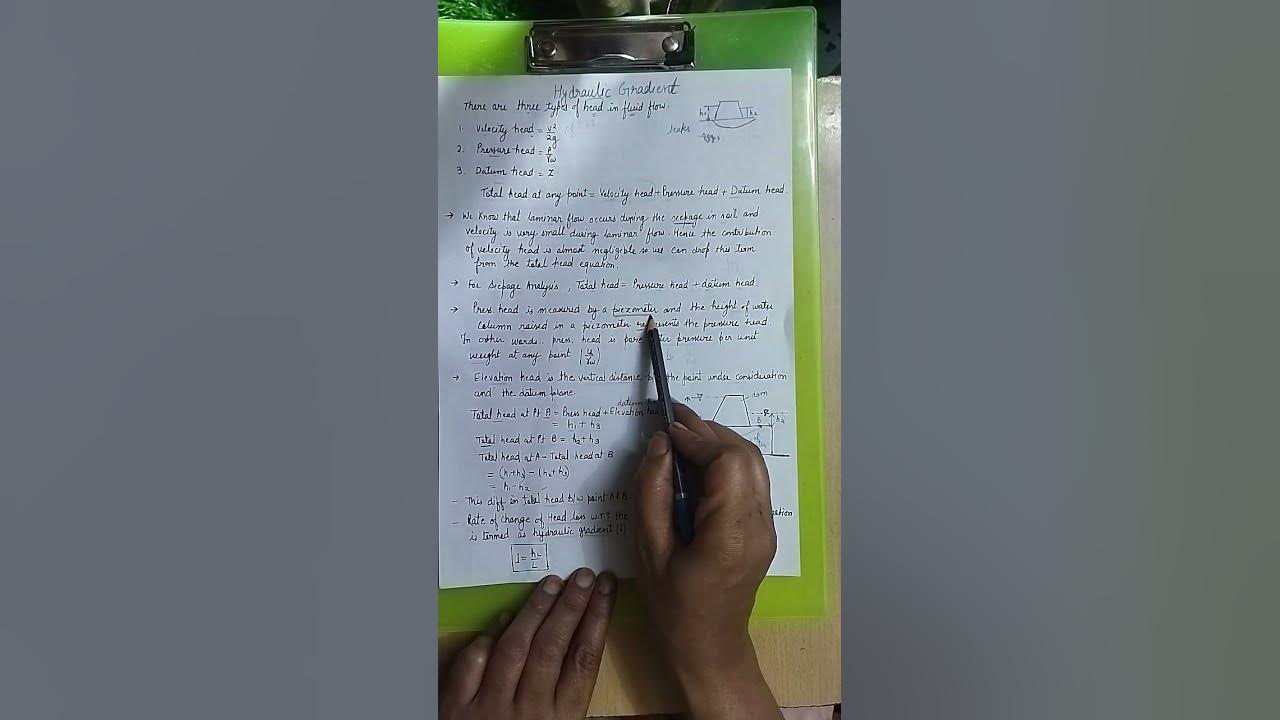 Hydraulic Gradient
There are three types of head in fluid flow.
1. Velocity head = V²/2g
2. Pressure head = P/γw
3. Datum head = Z
Total head at any point = Velocity head + Pressure head + Datum head.
→ We know that laminar flow occurs during the seepage in soil and
velocity is very small during laminar flow. Hence the contribution
of velocity head is almost negligible so we can drop this term
from the total head equation.
→ For seepage Analysis, Total head = Pressure head + datum head.
→ Press. head is measured by a piezometer and the height of water
column raised in a piezometer represents the pressure head.
In other words, press. head is water pressure per unit
weight at any point (u/γw)
→ Elevation head is the vertical distance the point under consideration
and the datum plane.
Total head at Pt A = Press head + Elevation
= h1 + h3
Total head at Pt B = h2 + h3
Total head at A - Total head at B
= (h1+h3) - (h2+h3)
= h1 - h2
- This diff in total head b/w point A & B
- Rate of change of Head loss w.r.t the
is termed as hydraulic gradient
I = hL/L
leaks
h2
datum
dam
B
h2